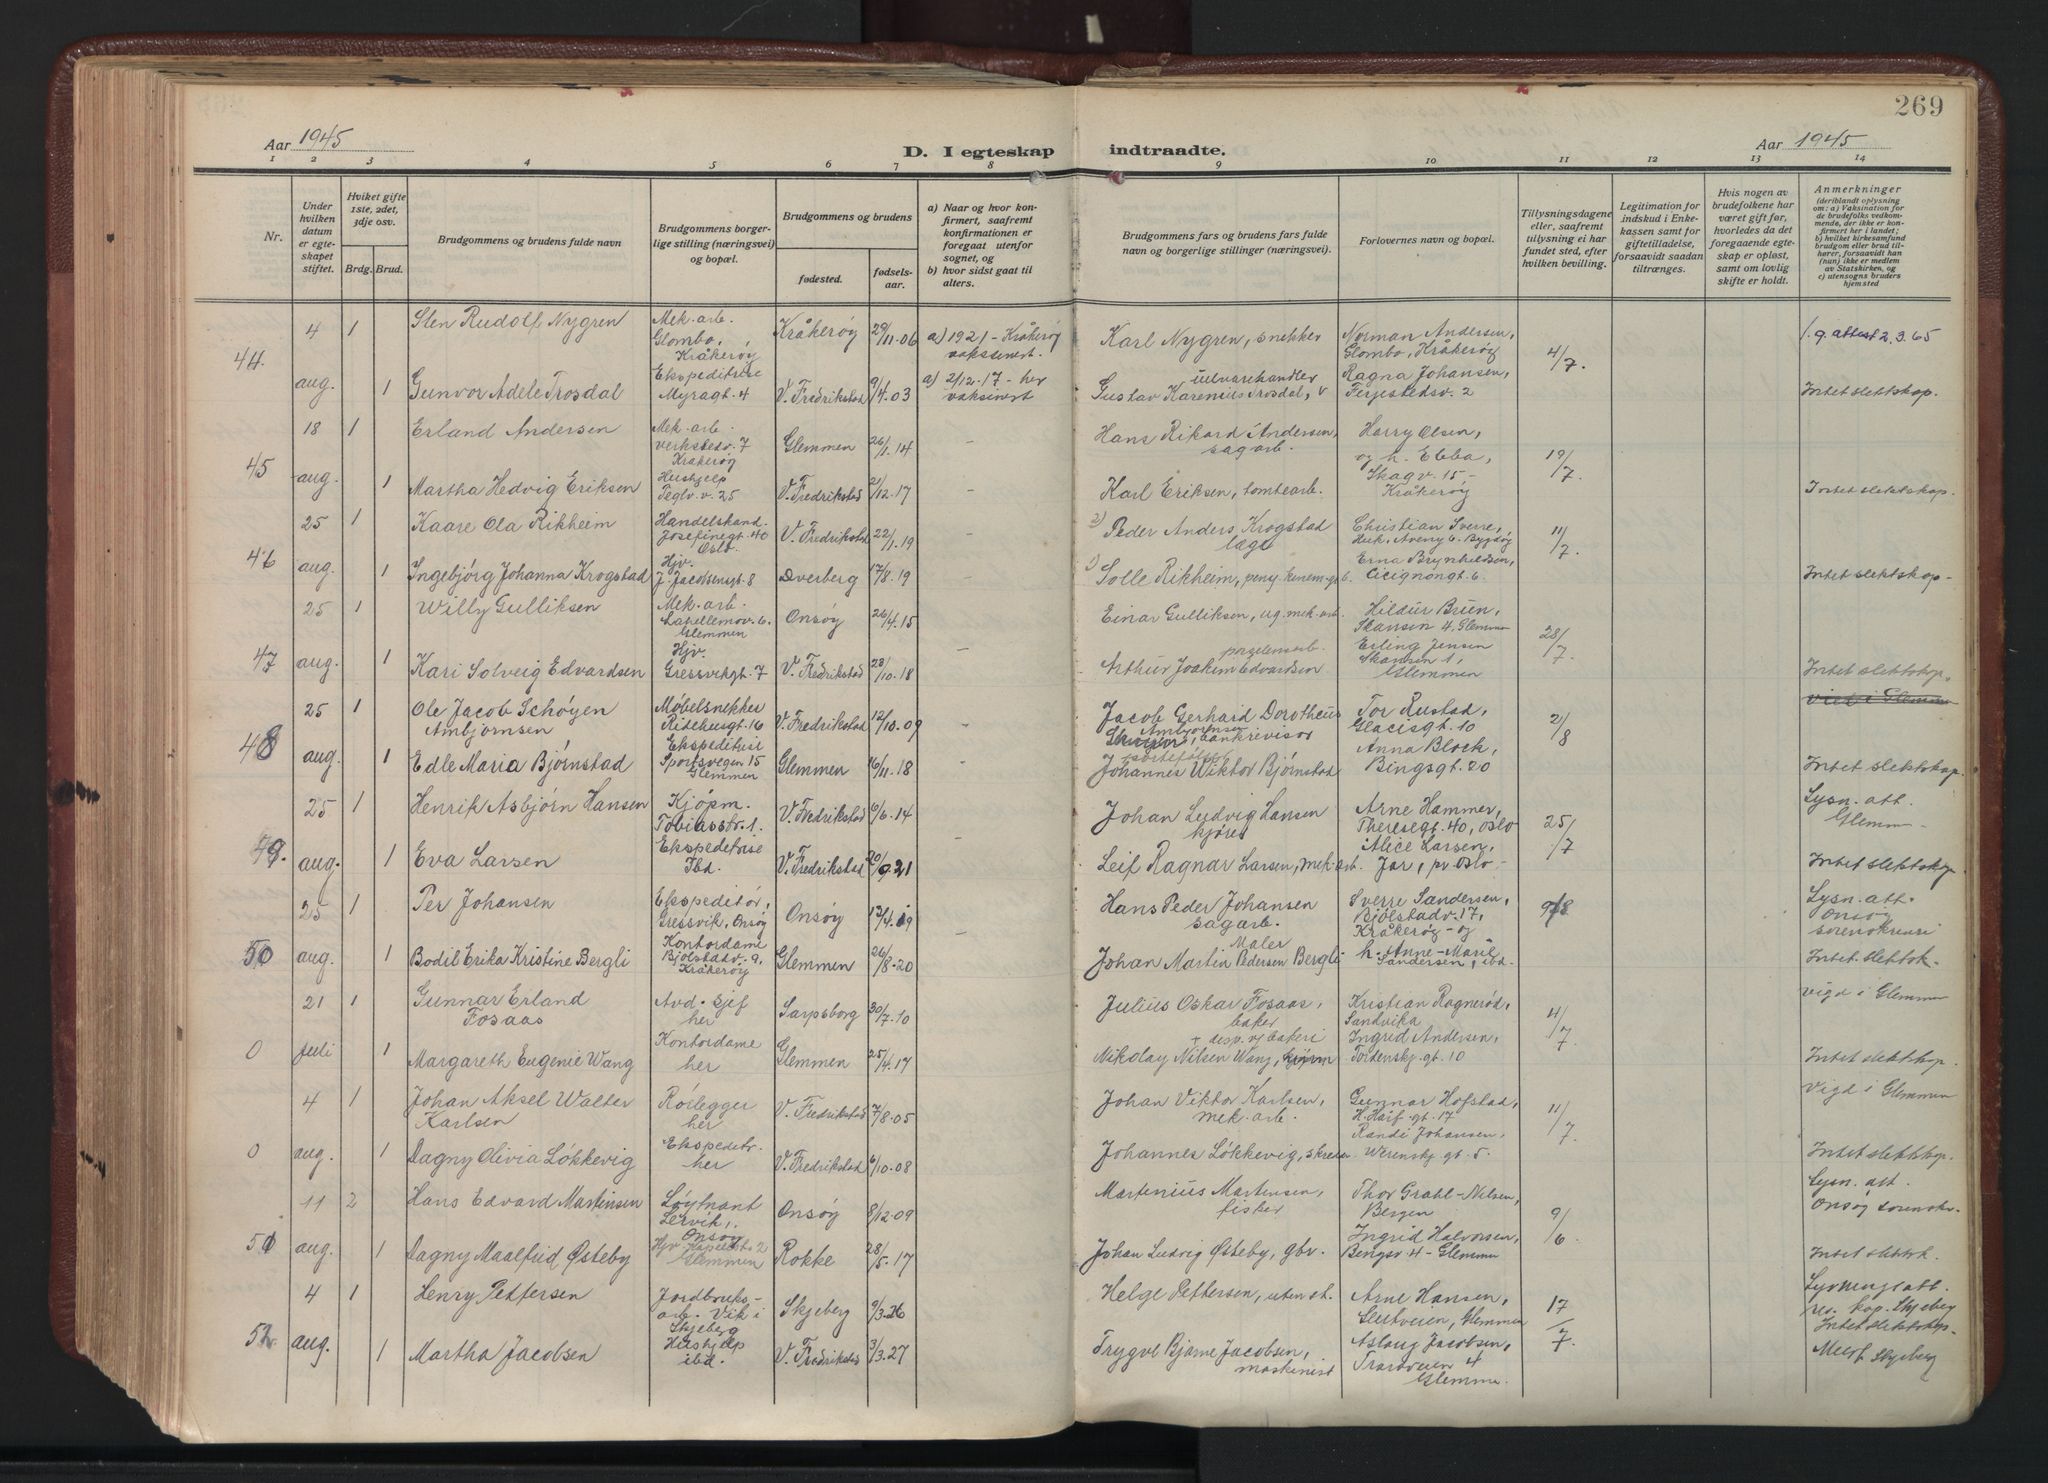 269
Aar 1945
D. I egteskap indtraadte.
Aar 1945
1 2 3 4 5 6 7 8 9 10 11 12 13 14
Nr.
Under hvilken datum er egteskapet stiftet.
Hviket gifte 1ste, 2det, 3dje osv.
Brdg. Brud.
Brudgommens og brudens fulde navn
Brudgommens borgerlige stilling (næringsvei) og bopæl.
Brudgommens og brudens
fødested.
fødselsaar.
a) Naar og hvor konfirmert, saafremt konfirmationen er foregaat utenfor sognet, og
b) hvor sidst gaat til alters.
Brudgommens fars og brudens fars fulde navn og borgerlige stillinger (næringsvei).
Forlovernes navn og bopæl.
Tillysningsdagene eller, saafremt tillysning ei har fundet sted, efter hvilken bevilling.
Legitimation for indskud i Enkekassen samt for giftetilladelse, forsaavidt saadan tiltrænges.
Hvis nogen av brudefolkene har været gift før, hvorledes da det foregaaende egteskap er opløst, samt om lovlig skifte er holdt.
Anmerkninger (deriblandt oplysning om: a) Vaksination for de brudefolks vedkommende, der ikke er konfirmert her i landet; b) hvilket kirkesamfund brudgom eller brud tilhører, forsaavidt han (hun) ikke er medlem av Statskirken, og c) utensogns bruders hjemsted
44. 4 aug.
1 Sten Rudolf Nygren Mek. arb. Glombo, Kråkerøy Kråkerøy 29/11.06 a) 1921 - Kråkerøy vaksinert. Karl Nygren, snekker Norman Andersen, Glombo, Kråkerøy 4/7. attest 2.3.65
1 Gunvor Adele Trosdal Ekspeditrise Myragt. 4 V. Fredrikstad 9/4.03 a) 2/12.17 - her vaksinert Gustav Karenius Trosdal, Ragna Johansen, Ferjestedsv. 2 Intet slektskap.
45 18 aug.
1 Erland Andersen Mek. arb. Verkstedv. 7 Kråkerøy Glemmen 26/1.14 - Hans Rikard Andersen, sagarb. Harry Olsen, og h. Ebba, Skagv. 15 - Kråkerøy 19/7
1 Martha Hedvig Eriksen Hushjelp Teglv. v. 25 V. Fredrikstad 2/12.17 - Karl Eriksen, tomtearb. Intet slektskap.
46 25 aug.
1 Kaare Ola Rikheim Handelskand. Josefinegt. 40 Oslo. V. Fredrikstad 22/1.19 2) Peder Anders Krogstad læge Christian Sverre, Huk. Aveny 6. Bygdøy 11/7.
1 Ingebjørg Johanna Krogstad Hjv. J. Jacobsensgt. 8 Dverberg 17/8.19 1) Solle Rikheim, Erna Brynhildsen, Cicignongt. 6. Intet slektskap -
47 25 aug.
1 Willy Gulliksen Mek. arb. Glemmen Onsøy 26/4.15 Einar Gulliksen, ug. mek. arb. Hildur Bruen, Skansen 4, Glemmen 28/7
1 Kari Solveig Edvardsen Hjv. Gressvikgt. 7 V. Fredrikstad 23/10.18 - Arthur Joakim Edvardsen porselensarb. Erling Jensen Skansen 1, Glemmen Intet slektskap.
48 25 aug.
1 Ole Jacob Schøyen Ambjørnsen Møbelsnekker Ridehusgt. 16 V. Fredrikstad 12/10.09 - Jacob Gerhard Dorotheus Ambjørnsen, bankrevisor Tor Rustad, Glacisgt. 10 2/8 Viet i Glemmen
1 Edle Maria Bjørnstad Ekspeditrise Sportsvegen 15 Glemmen Glemmen 16/11.18 - Johannes Wiktor Bjørnstad Anna Block, Bingsgt. 20 Intet slektskap.
49. 25 aug.
1 Henrik Asbjørn Hansen Kjøpm. Tobiasstr. 1. V. Fredrikstad 6/6.14 Johan Ludvig Hansen kjører Arne Hammer, Theresegt. 40, Oslo 25/7 Lysn. att. Glemm -
1 Eva Larsen Ekspeditrise Ibd. V. Fredrikstad 20/9.21 - Leif Ragnar Larsen, mek. arb. Alice Larsen, Jar, pr Oslo - Intet slektskap.
50 25 aug.
1 Per Johansen Ekspeditør, Gressvik, Onsøy Onsøy 13/4.19 - Hans Peder Johansen sagarb. Sverre Sandersen, Bjølstadv. 17, Kråkerøy - og 9/8 Lysn. att. Onsøy sorenskriveri
1 Bodil Erika Kristine Bergli Kontordame Bjølstadv. 9, Kråkerøy Glemmen 26/8.20 Johan Martin Pedersen Bergli Maler h. Anne-Marie Sandersen, ibd. Intet slektsk.
0 21 juli
1 Gunnar Erland Fosaas Avd. sjef her Sarpsborg 30/7.10 Julius Oskar Fosaas, baker Kristian Ragnerød, Sandvika 4/7. Vigd i Glemmen
1 Margareth Eugenie Wang Kontordame her Glemmen 25/4.17 + disp. v/ bakeri Nikolay Nilsen Wang, Ingrid Andersen, Tordenskj. gt. 10 Intet slektskap.
0 4 aug.
1 Johan Aksel Walter Karlsen Rørlegger her V. Fredrikstad 7/8.05 Johan Viktor Karlsen, mek. arb. Gunnar Hofstad, H. Harf. gt. 17 11/7. Vigd i Glemmen
1 Dagny Olivia Løkkevig Ekspeditr. her V. Fredrikstad 6/10.08 Johannes Løkkevig, skredder Randi Johansen, Werenskj. gt. 5. Intet slektskap.
51 11 aug.
2 Hans Edvard Martinsen Løytnant Lervik, Onsøy Onsøy 8/12.09 Martenius Martensen, fisker Thor Grahl-Nilsen, Bergen 9/6 Lysn. att. Onsøy sorenskr.
1 Dagny Maalfrid Østeby Hjv. Glemmen Rokke 28/5.17 Johan Ludvig Østeby, gbr. Ingrid Halvorsen, Bingsv. 4 - Glemmen Intet slektsk.
52. 4 aug.
1 Henry Pettersen Jordbruksarb. Vik i Skjeberg Skjeberg 9/3.26 Helge Pettersen, uten st. Arne Hansen, Glemmen 17/7. Lysningsatt. res. kap. Skjeberg
1 Martha Jacobsen Hushjelp ibd. V. Fredrikstad 3/3.27 Trygve Bjarne Jacobsen, maskinist Aslaug Jacobsen, Traraveien 4 Glemmen. Intet slektskap. Skjeberg